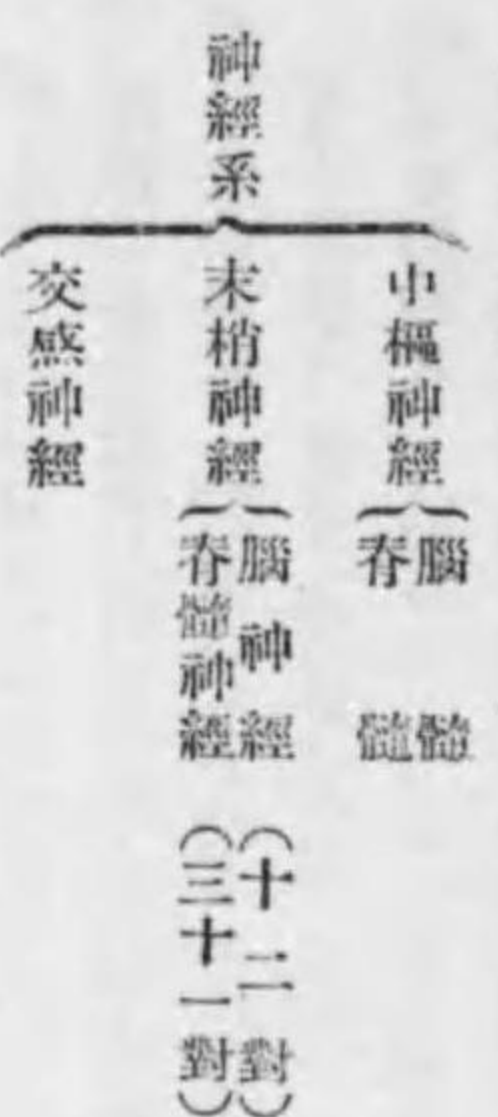 神經系
中樞神經
腦髓
脊髓
末梢神經
腦神經(十二對)
脊髓神經(三十一對)
交感神經